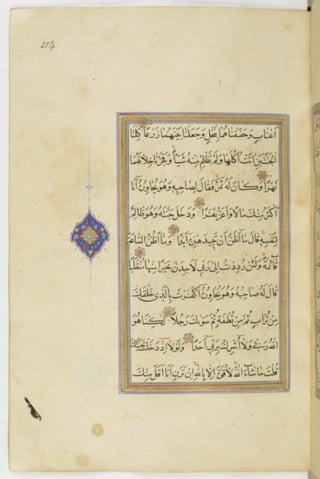 214
أَعْنَابٍ وَحَفَفْنَاهُمَا بِنَخْلٍ وَجَعَلْنَا بَيْنَهُمَا زَرْعًا كِلْتَا
الْجَنَّتَيْنِ آتَتْ أُكُلَهَا وَلَمْ تَظْلِمْ مِنْهُ شَيْئًا وَفَجَّرْنَا خِلَالَهُمَا
نَهَرًا وَكَانَ لَهُ ثَمَرٌ فَقَالَ لِصَاحِبِهِ وَهُوَ يُحَاوِرُهُ أَنَا
أَكْثَرُ مِنْكَ مَالًا وَأَعَزُّ نَفَرًا وَدَخَلَ جَنَّتَهُ وَهُوَ ظَالِمٌ
لِنَفْسِهِ قَالَ مَا أَظُنُّ أَنْ تَبِيدَ هَذِهِ أَبَدًا وَمَا أَظُنُّ السَّاعَةَ
قَائِمَةً وَلَئِنْ رُدِدْتُ إِلَى رَبِّي لَأَجِدَنَّ خَيْرًا مِنْهَا مُنْقَلَبًا
قَالَ لَهُ صَاحِبُهُ وَهُوَ يُحَاوِرُهُ أَكَفَرْتَ بِالَّذِي خَلَقَكَ
مِنْ تُرَابٍ ثُمَّ مِنْ نُطْفَةٍ ثُمَّ سَوَّاكَ رَجُلًا لَكِنَّا هُوَ
اللَّهُ رَبِّي وَلَا أُشْرِكُ بِرَبِّي أَحَدًا وَلَوْلَا إِذْ دَخَلْتَ جَنَّتَكَ
قُلْتَ مَا شَاءَ اللَّهُ لَا قُوَّةَ إِلَّا بِاللَّهِ إِنْ تَرَنِ أَنَا أَقَلَّ مِنْكَ